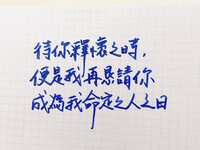 待你釋懷之時,
便是我再懇請你
成為我命定之人之日